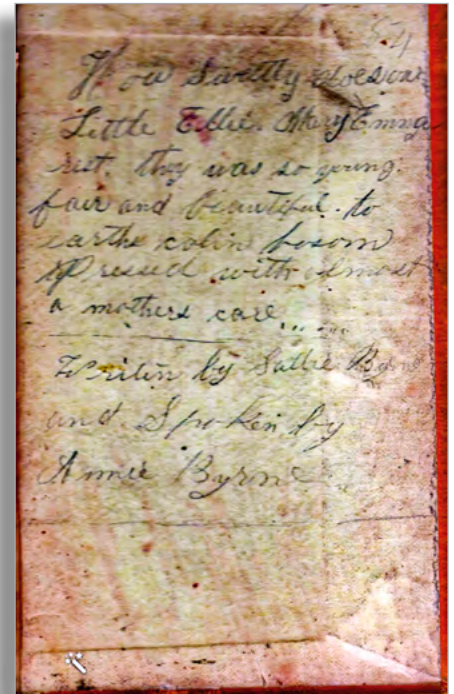 54
How Sweetly does our
Little Tillie. Mary Emma
rest. they was so young.
fair and beautiful. to
earths calm bosom
Pressed with almost
a mothers care......
Writen by Sallie Byrne
and Spoken by
Annie Byrne